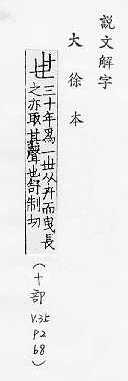 説文解字
大徐本
世
三十年爲一世从卅而曳長
之亦取其聲也舒制切
(十部
V.3.5
P2
b8)